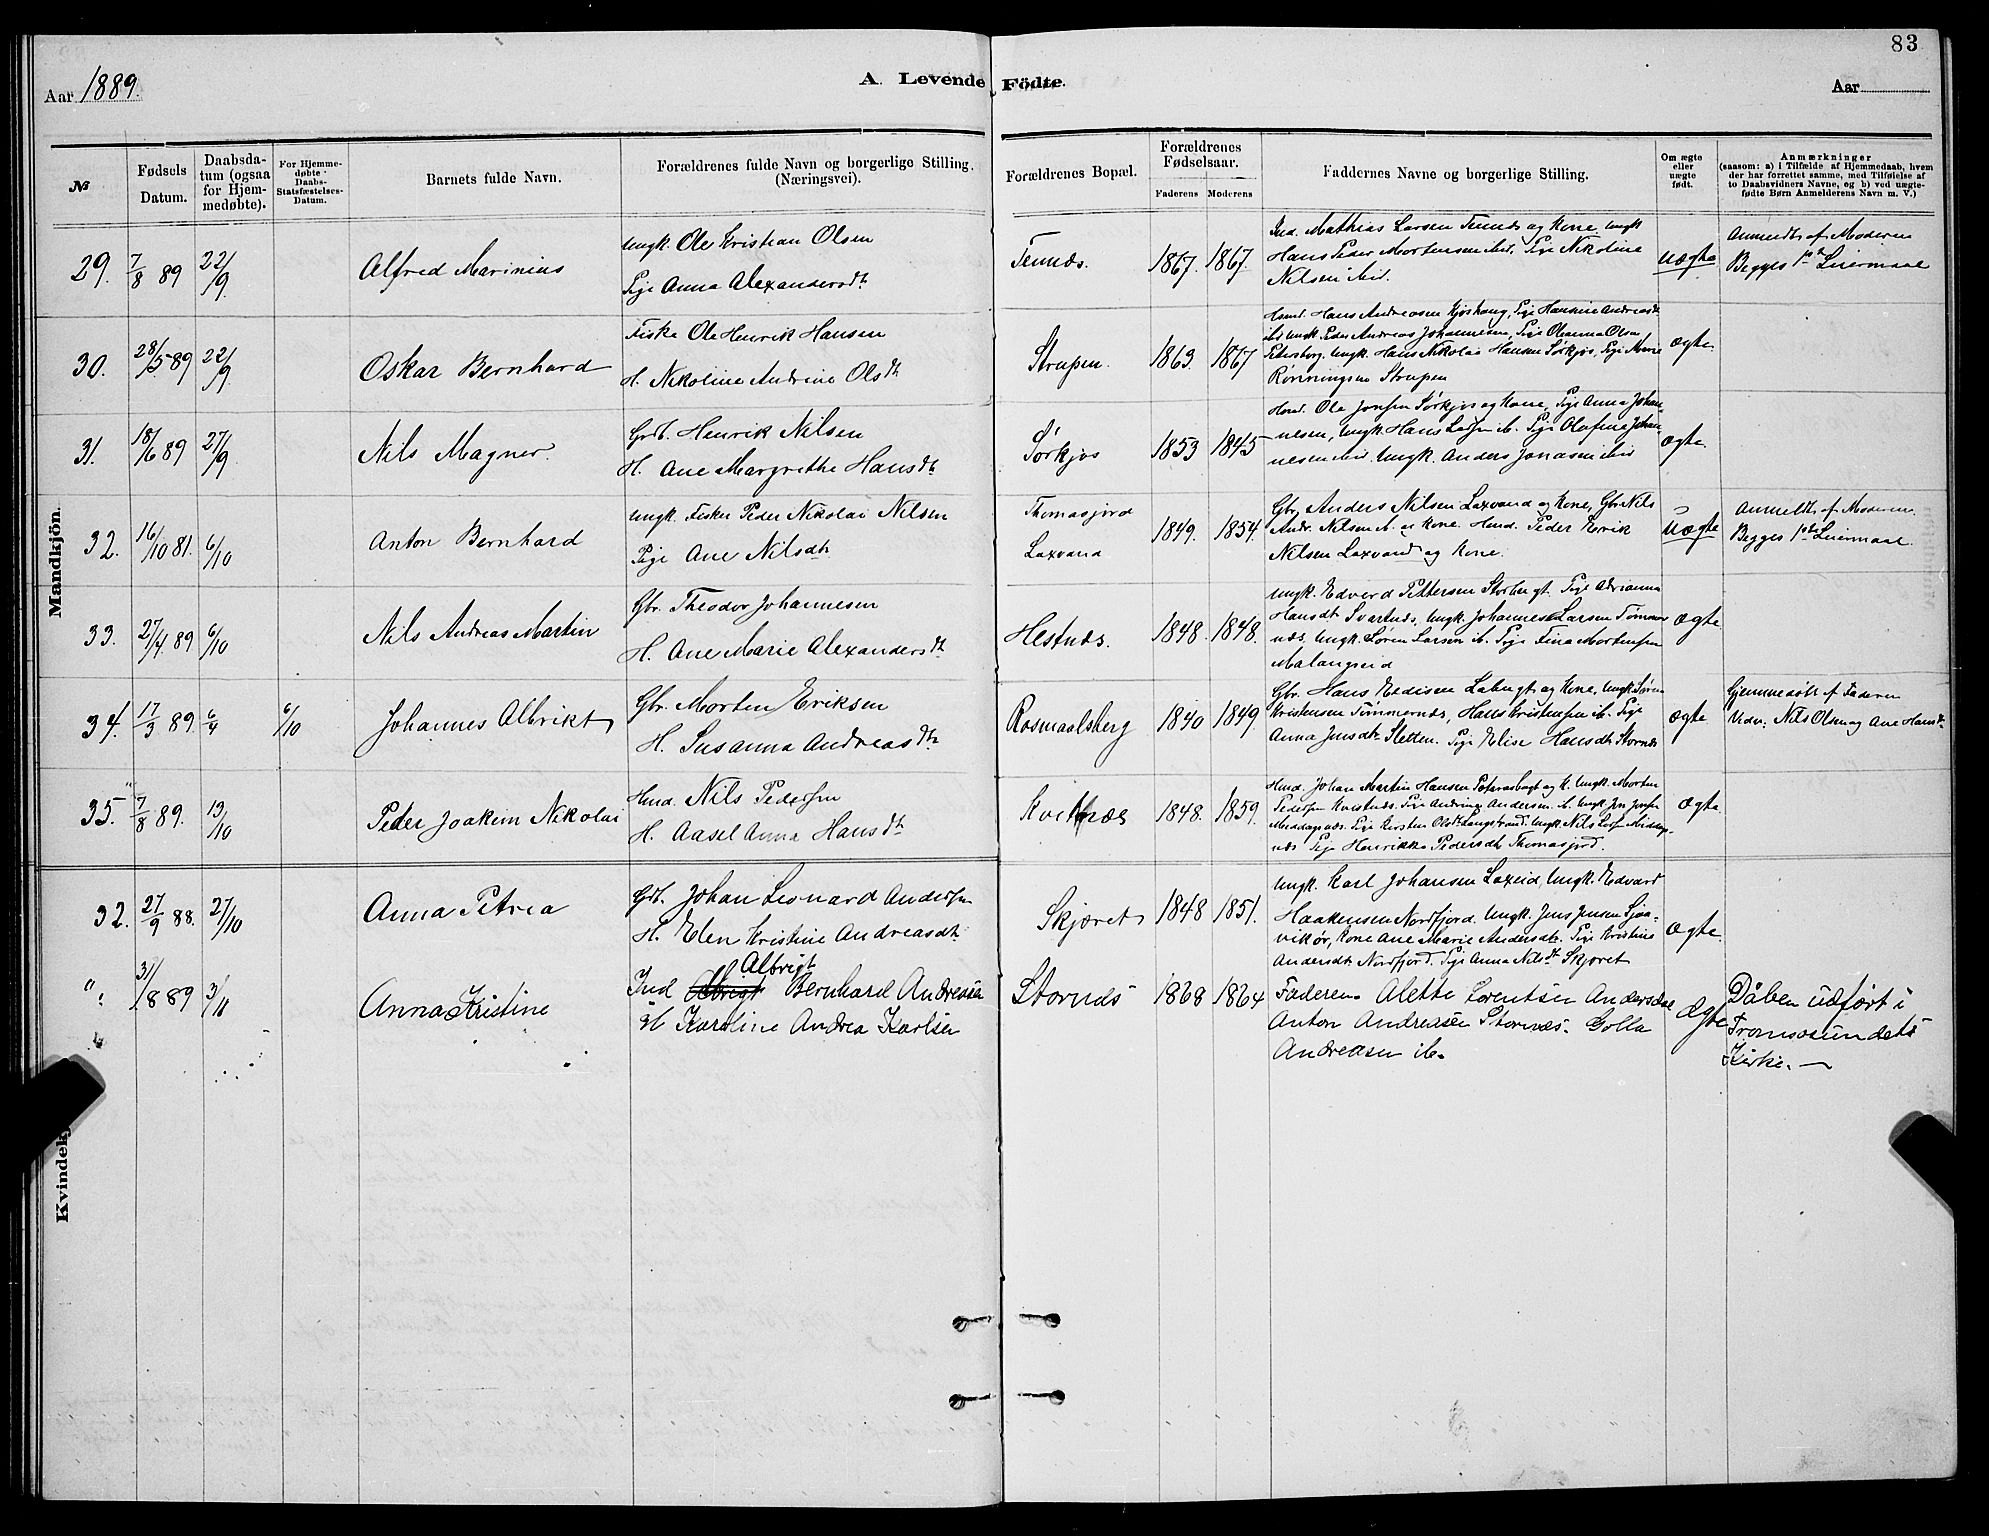 83
Aar 1889.
A. Levende Födte.
Aar
№
Fødsels Datum.
Daabsdatum (ogsaa for Hjemmedøbte).
For Hjemmedøbte Daabs-Statsfæstelses-Datum.
Barnets fulde Navn.
Forældrenes fulde Navn og borgerlige Stilling. (Næringsvei).
Forældrenes Bopæl.
Forældrenes Fødselsaar.
Faderens Moderens
Faddernes Navne og borgerlige Stilling.
Om ægte eller uægte født.
Anmærkninger
(saasom: a) i Tilfælde af Hjemmedaab, hvem
der har forrettet samme, med Tilføielse af
to Daabsvidners Navne, og b) ved uægte-
fødte Børn Anmelderens Navn m. V.)
Mandkjön.
29. 7/8 89 22/9 Alfred Marinius
Ungk. Ole Kristian Olsen
Pige Anna Alexandersdt
Tennæs. 1867. 1867
Ind. Mathias Larsen Tennæs og Kone, Ungk
Hans Peder Mortensen ibid. Pige Nikoline
Nilsen ibid.
uægte
Anmeldt af Moderen
Begges 1ste Leiermaal
30. 28/5 89 22/9 Oskar Bernhard
Fisker Ole Henrik Hansen
H. Nikoline Andrine Olsdt
Strupen. 1863. 1867
Hmd. Hans Andreasen Kjoshaug, Pige Hansine Andreasdt
ib. Ungk. Peder Andreas Johannesen, Pige Oleanna Olsen
Petersborg. Ungk. Hans Nikolai Hansen Sørkjos. Pige Marie
Rønningsen Strupen
ægte.
31. 18/6 89 27/9 Nils Magner.
Grdb. Henrik Nilsen
H. Ane Margrethe Hansdt
Sørkjos 1853 1845
Hmd. Ole Jonsen Sørkjos og Kone, Pige Anna Johan-
nesen, Ungk. Hans Larsen ib. Pige Olufine Johan-
nesen ibid. Ungk. Anders Jonasen ibid
ægte.
32. 16/10 81. 6/10 Anton Bernhard
Ungk. Fisker Peder Nikolai Nilsen
Pige Ane Nilsdt
Thomasjord
Laxvand
1849. 1854.
Gbr. Anders Nilsen Laxvand og Kone, Gbr. Nils
Andr. Nilsen ib. og Kone. Hmd. Peder Henrik
Nilsen Laxvand og Kone.
uægte
Anmeldt af Moderen.
Begges 1ste Leiermaal.
33. 27/4 89 6/10 Nils Andreas Martin
Gbr. Theodor Johannesen
H. Ane Marie Alexandersdt
Hestnæs. 1848. 1848.
Ungk. Edvard Pettersen Storbergt. Pige Adrianna
Hansdt Svartnæs, Ungk. Johannes Larsen Tømmer
næs, Ungk. Søren Larsen ib. Pige Fina Mortensen
Malangseid
ægte.
34. 17/3 89. 6/4 6/10 Johannes Albrikt
Gbr. Morten Eriksen
H. Susanna Andreasdt
Rosmaalsberg 1840 1849.
Gbr. Hans Edisen Labugt og Kone, Ungk. Søren
Kristensen Tømmernæs, Hans Kristensen ib. Pige
Anna Jensdt Sletten. Pige Elise Hansdt Stornæs
ægte
Hjemmedøbt af Faderen
Vidn. Nils Olsen og Ane Hansdt.
35. 7/8 89. 13/10 Peder Joakim Nikolai
Hmd. Nils Pedersen
H. Aasel Anna Hansdt
Kvitnæs 1848. 1859.
Hmd. Johan Martin Hansen og K. Ungk. Morten
Pedersen Kvitnæs. Pige Andrine Andersen ib. Ungk. Jens Jensen
Middagsnæs. Pige Kirsten Olsdt Langstrand. Ungk. Nils Larsen Middags-
næs Pige Henrikke Pedersdt Thomasjord.
ægte.
32. 27/9 88. 27/10 Anna Petrea
Grdb. Johan Leonard Andersen
H. Elen Kristine Andreasdt.
Skjæret 1848 1851.
Ungk. Karl Johansen Laxeid, Ungk. Edvard
Haakensen Nordfjord. Ungk. Jens Jensen Sjøa-
vikør, Kone Ane Marie Andersdt. Pige Kristine
Andersdt Nordfjord. Pige Anna Nilsdt Skjæret
ægte.
". 31/8 89 3/11 Anna Kristine
Ind Albrigt Bernhard Andreasen
H Karoline Andrea Karlsen
Stornæs 1868 1864
Faderen Alette Lorentsen Andersdal
Anton Andreasen Stornæs. Golla
Andreasen ib.
Ægte
Dåben udført i
Tromsøsundets
Kirke. —
Kvindekj